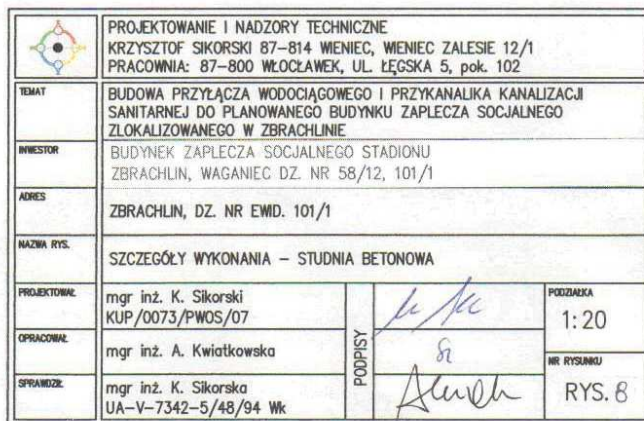 PROJEKTOWANIE I NADZORY TECHNICZNE
KRZYSZTOF SIKORSKI 87-814 WIENIEC, WIENIEC ZALESIE 12/1
PRACOWNIA: 87-800 WŁOCŁAWEK, UL. ŁĘGSKA 5, pok. 102
TEMAT
BUDOWA PRZYŁĄCZA WODOCIĄGOWEGO I PRZYKANALIKA KANALIZACJI
SANITARNEJ DO PLANOWANEGO BUDYNKU ZAPLECZA SOCJALNEGO
ZLOKALIZOWANEGO W ZBRACHLINIE
INWESTOR
BUDYNEK ZAPLECZA SOCJALNEGO STADIONU
ZBRACHLIN, WAGANIEC DZ. NR 58/12, 101/1
ADRES
ZBRACHLIN, DZ. NR EWID. 101/1
NAZWA RYS.
SZCZEGÓŁY WYKONANIA – STUDNIA BETONOWA
PROJEKTOWAŁ
mgr inż. K. Sikorski
KUP/0073/PWOS/07
OPRACOWAŁ
mgr inż. A. Kwiatkowska
SPRAWDZIŁ
mgr inż. K. Sikorska
UA-V-7342-5/48/94 Wk
PODPISY
PODZIAŁKA
1:20
NR RYSUNKU
RYS. 8